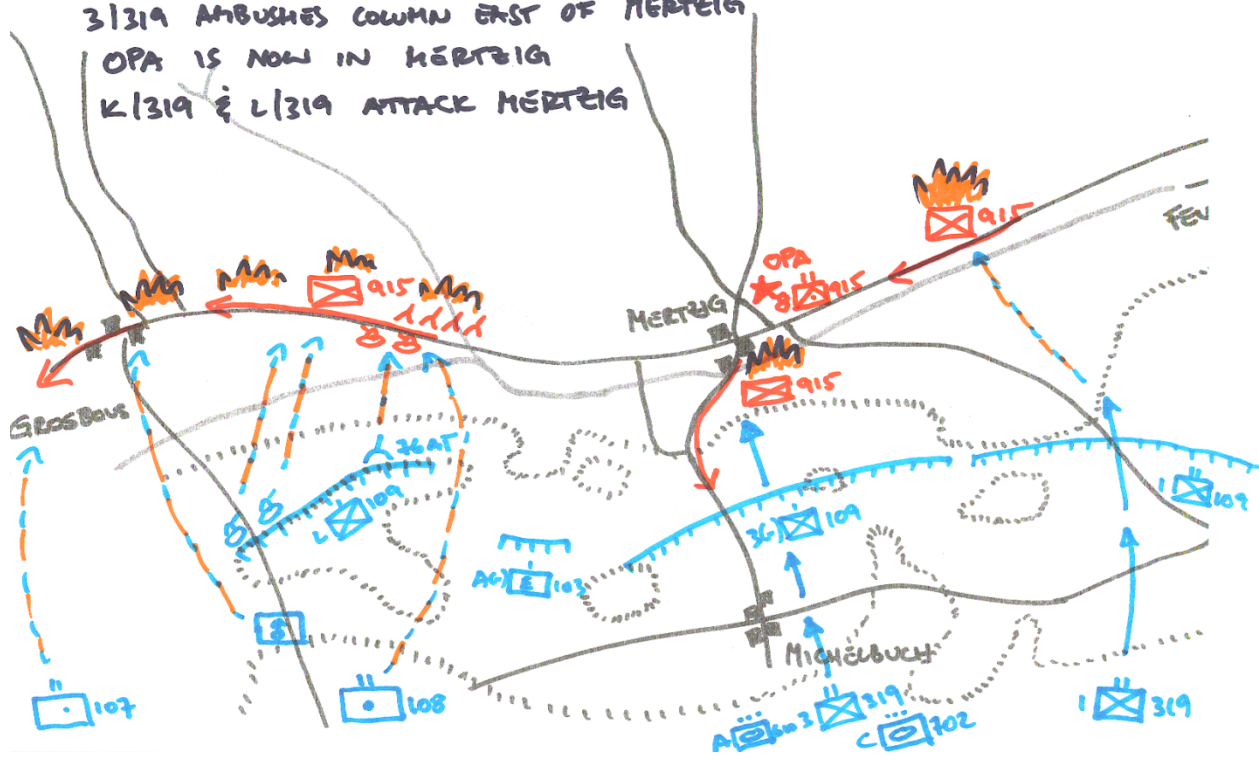 3/319 AMBUSHES COLUMN EAST OF MERTZIG
OPA IS NOW IN MERTZIG
K/319 & L/319 ATTACK MERTZIG
915
FEU
OPA
915
8 915
MERTZIG
915
GROSBOUS
76AT
L 109
1 109
3G) 109
AG) 103
MICHELBUCH
107
108
3 319
A
C 702
1 319